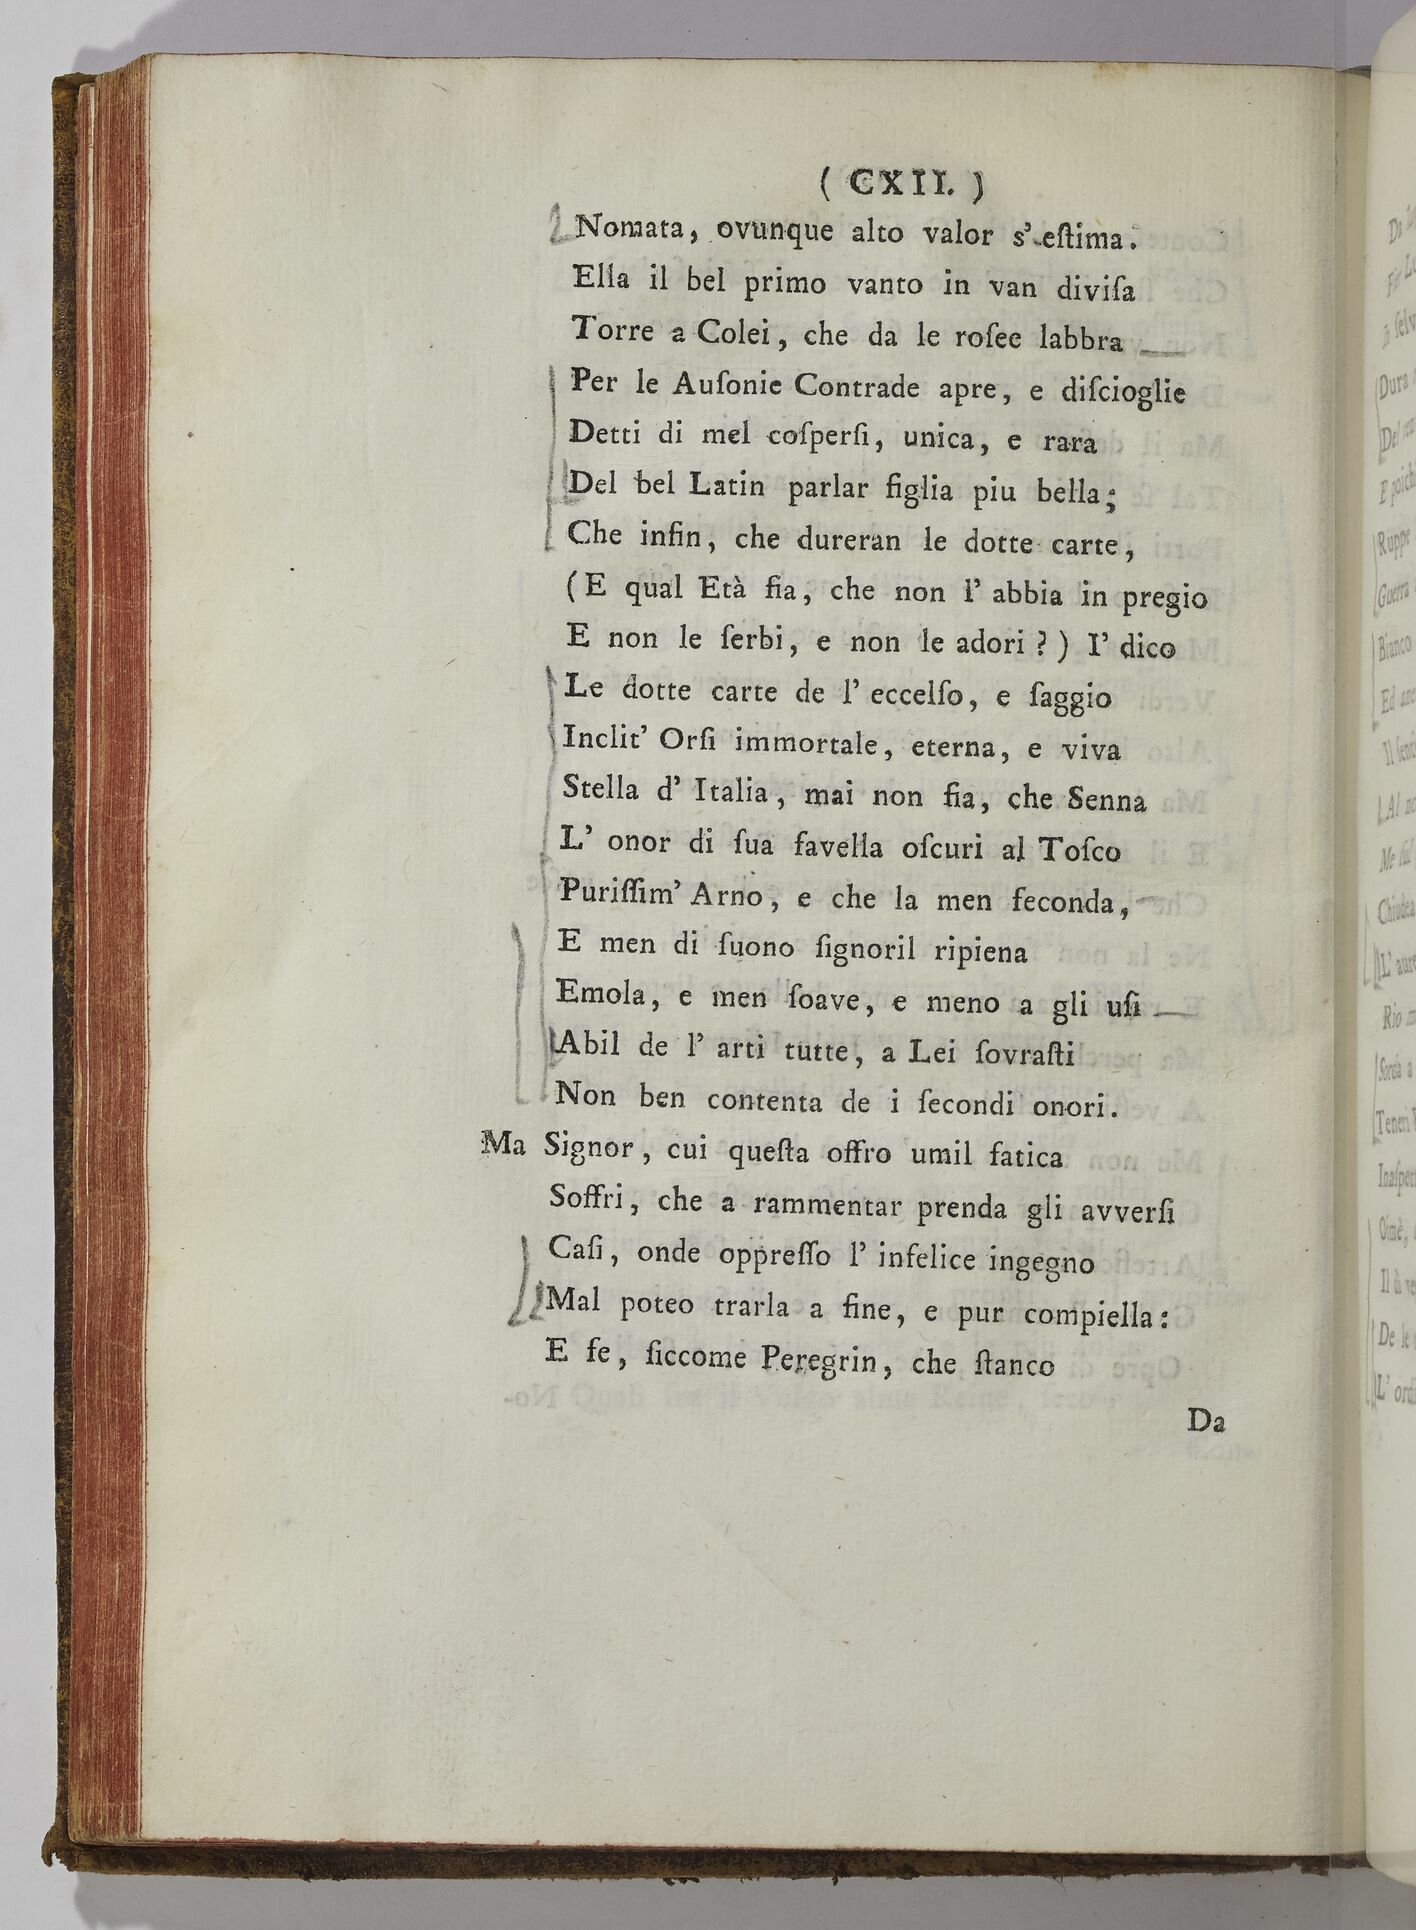 ( CXII. )
Nomata, ovunque alto valor s' eſtima.
Ella il bel primo vanto in van diviſa
Torre a Colei, che da le roſee labbra
Per le Auſonie Contrade apre, e diſcioglie
Detti di mel coſperſi, unica, e rara
Del bel Latin parlar figlia piu bella;
Che infin, che dureran le dotte carte,
(E qual Età fia, che non l' abbia in pregio
E non le ſerbi, e non le adori ? ) I' dico
Le dotte carte de l' eccelſo, e ſaggio
Inclit' Orſi immortale, eterna, e viva
Stella d' Italia, mai non fia, che Senna
L' onor di ſua favella oſcuri al Toſco
Puriſſim' Arno, e che la men feconda,
E men di ſuono ſignoril ripiena
Emola, e men ſoave, e meno a gli uſi
Abil de l' arti tutte, a Lei ſovraſti
Non ben contenta de i ſecondi onori.
Ma Signor, cui queſta offro umil fatica
Soffri, che a rammentar prenda gli avverſi
Caſi, onde oppreſſo l' infelice ingegno
Mal poteo trarla a fine, e pur compiella:
E fe, ſiccome Peregrin, che ſtanco
Da